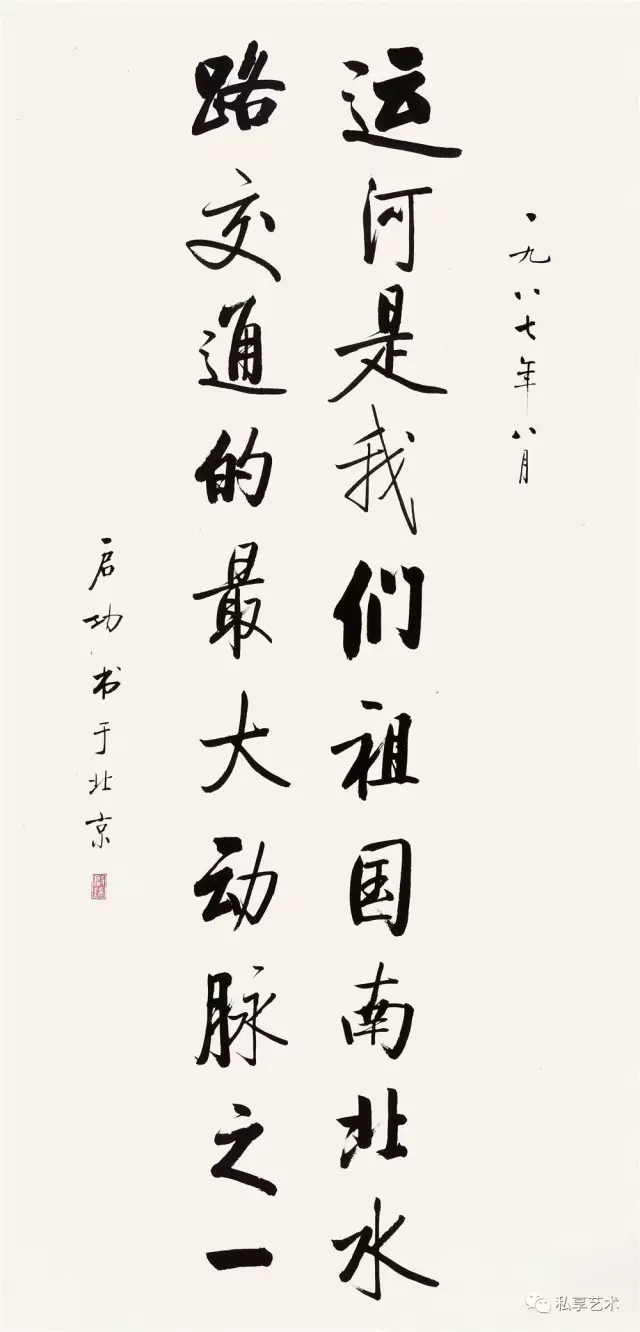 一九八七年八月
运河是我们祖国南北水
路交通的最大动脉之一
启功书于北京
私享艺术